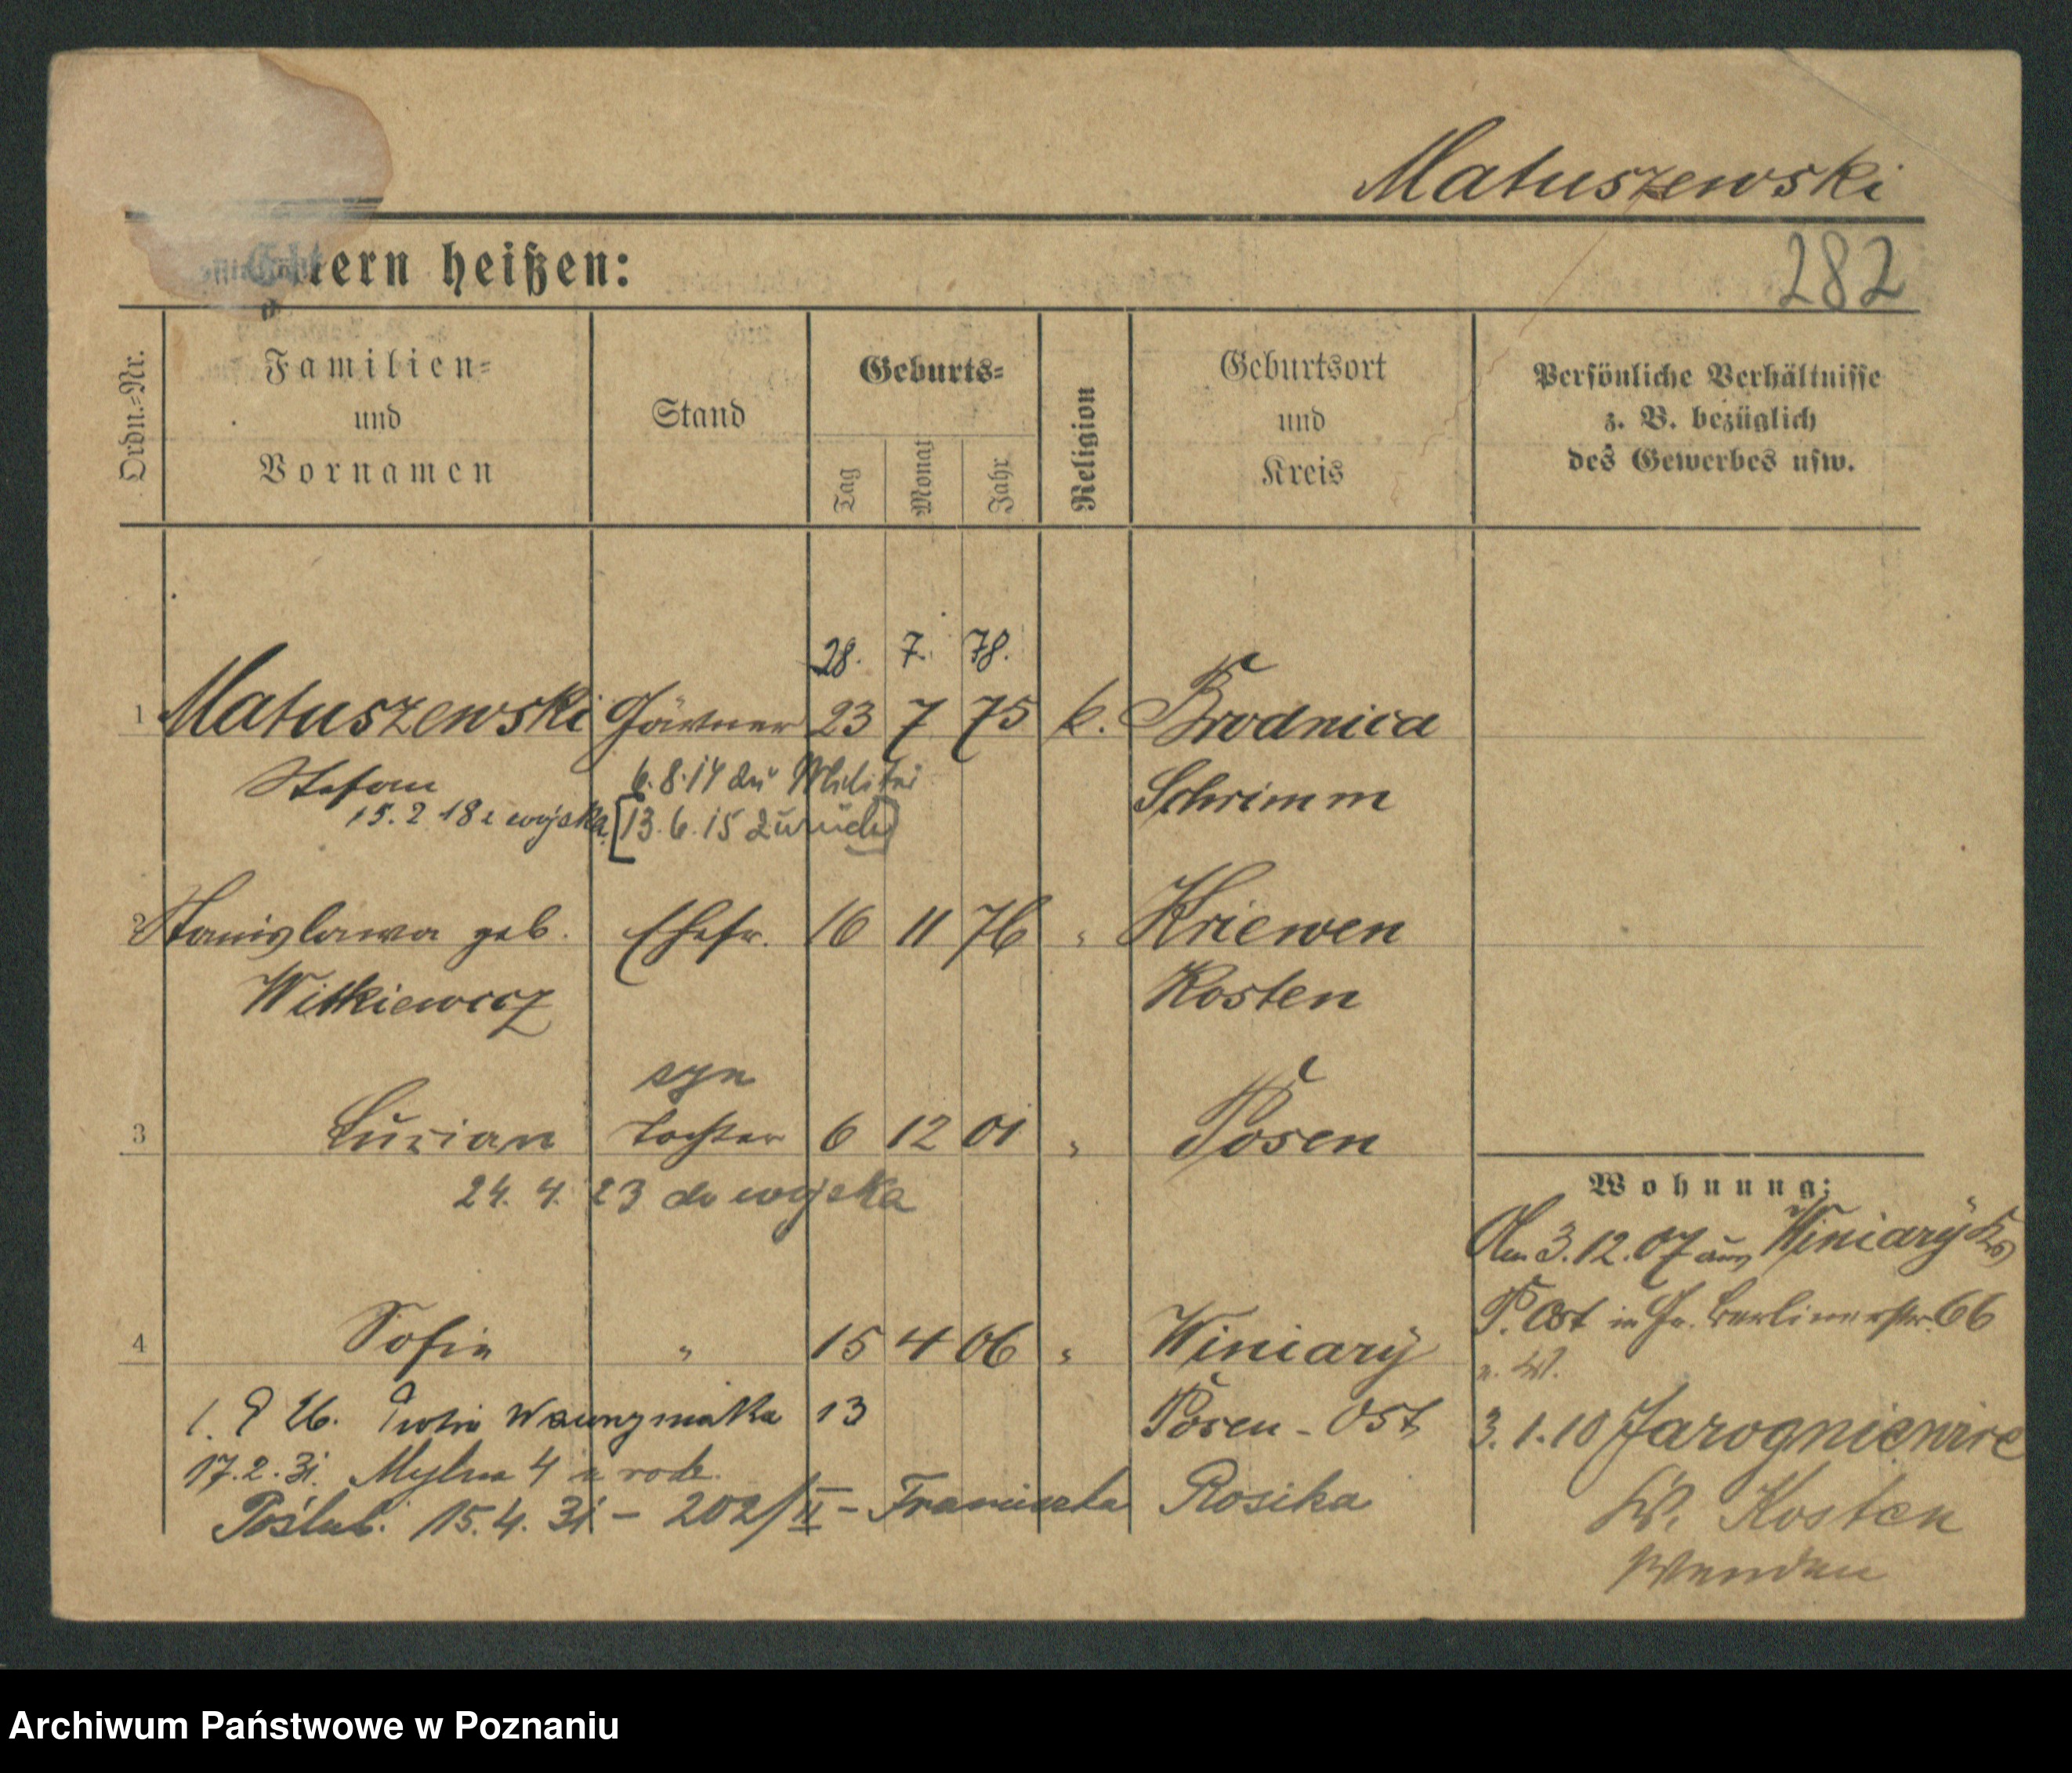 Matuszewski
Eltern heißen:
282
Ordn.-Nr.
Familien-
und
Vornamen
Stand
Geburts-
Tag
Monat
Jahr
Religion
Geburtsort
und
Kreis
Persönliche Verhältnisse
z. B. bezüglich
des Gewerbes usw.
28. 7. 78.
1 Matuszewski Gärtner 23 7 75 k. Brodnica
Stefan 6.8.14 zu Militär Schrimm
15.2 18 z wojska [13.6.15 zurück]
2 Stanislawa geb. Ehefr. 16 11 76 " Kriewen
Witkiewicz Kosten
syn
3 Luzian Tochter 6 12 01 " Posen
24. 4. 23 do wojska
Wohnung:
Am 3.12.07 aus Winiary Krs
P. Ost in Gr. Berlinerstr. 66
4 Sofie " 15 4 06 " Winiary
1. 9 26. Piotra Wawrzyniaka 13 Posen-Ost
3.1.10 Jarogniewice
17.2.31. Mylna 4 u rodz.
Poślub. 15.4.31 - 202/II - Franciszka Rosika
Kr. Kosten